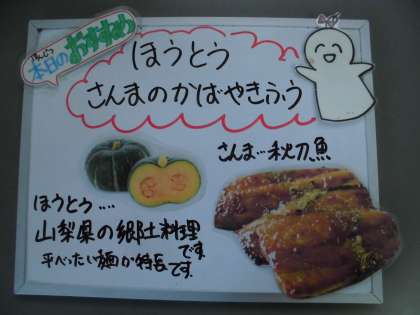 本日の
おすすめ
ほうとう
さんまのかばやきふう
さんま…秋刀魚
ほうとう‥‥
山梨県の郷土料理
です
平べったい麺が特長
です。